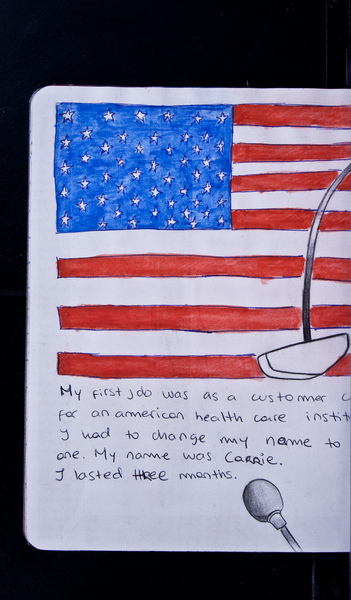 My first job was as a customer
for an american health care
I had to change my name to
one. My name was CARRIE.
I lasted three months.